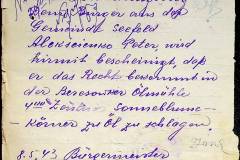 Dem Bürger aus der
Gemeinde Seefeld
Peter, wird
hirmit bescheinigt, daß
er das Recht bekommt in
der Beresower Ölmühle
Sonneblume-
Körner zu Öl zu schlagen.
8.5.43 Bürgermeister